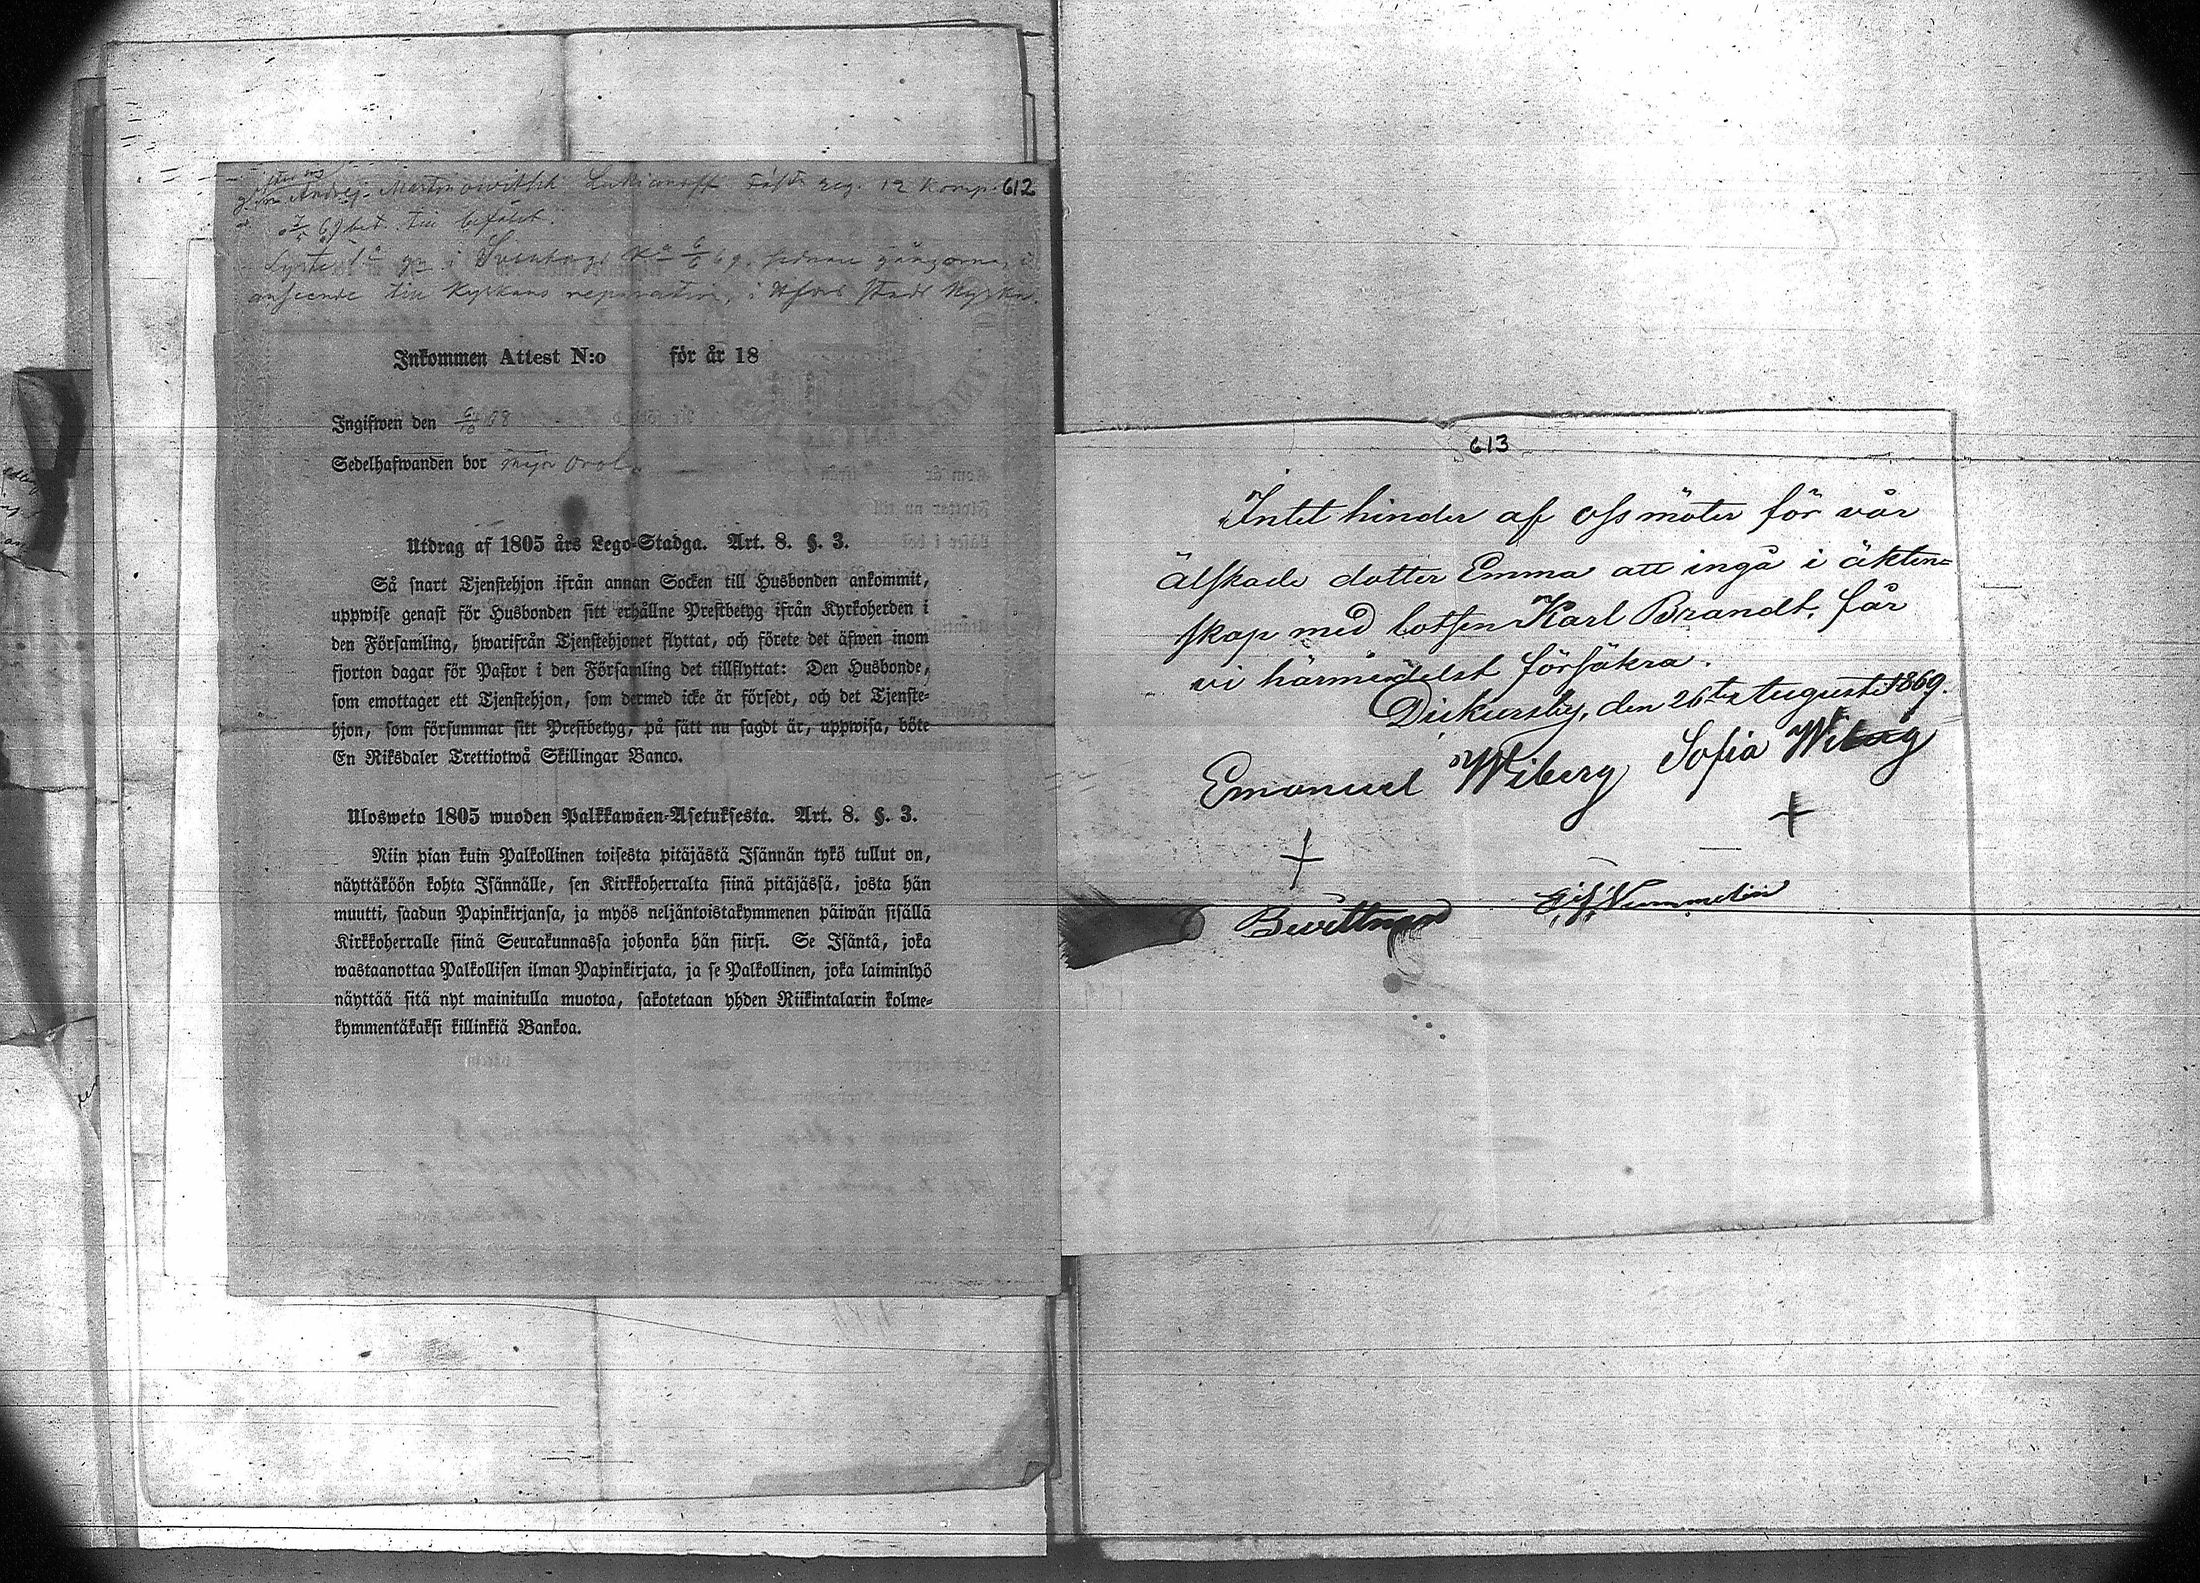 612
Andrej Martinowitsch Lukianoff Fäst. reg. 12 Komp.
69 bet. till befälet.
Lyste 1a gn i Sveaborgs Ka 6/6 69. senare gångorna, i
anseende till kyrkans reparation, i Hfors stads kyrka.
Inkommen Attest N:o för år 18
Ingifwen den 6/10 68
Sedelhafwanden bor
Utdrag af 1805 års Lego-Stadga. Art. 8. §. 3.
Så snart Tjenstehjon ifrån annan Socken till Husbonden ankommit,
uppwise genast för Husbonden sitt erhållne Prestbetyg ifrån Kyrkoherden i
den Församling, hwarifrån Tjenstehjonet flyttat, och förete det äfwen inom
fjorton dagar för Pastor i den Församling det tillflyttat: Den Husbonde,
som emottager ett Tjenstehjon, som dermed icke är försedt, och det Tjenste-
hjon, som försummar sitt Prestbetyg, på sätt nu sagdt är, uppwisa, böte
En Riksdaler Trettiotwå Skillingar Banco.
Ulosweto 1805 wuoden Palkkawäen-Asetuksesta. Art. 8. §. 3.
Niin pian kuin Palkollinen toisesta pitäjästä Isännän tykö tullut on,
näyttäköön kohta Isännälle, sen Kirkkoherralta siinä pitäjässä, josta hän
muutti, saadun Papinkirjansa, ja myös neljäntoistakymmenen päiwän sisällä
Kirkkoherralle siinä Seurakunnassa johonka hän siirsi. Se Isäntä, joka
wastaanottaa Palkollisen ilman Papinkirjata, ja se Palkollinen, joka laiminlyö
näyttää sitä nyt mainitulla muotoa, sakotetaan yhden Riikintalarin kolme-
kymmentäkaksi killinkiä Bankoa.
613
Intet hinder af oss möter för vår
älskade dotter Emma att ingå i äkten-
skap med lotsen Karl Brandt, får
vi härmedelst försäkra.
Dickursby, den 26te Augusti 1869.
Emanuel Wiberg Sofia Wiberg
Bewittnar Nummelin